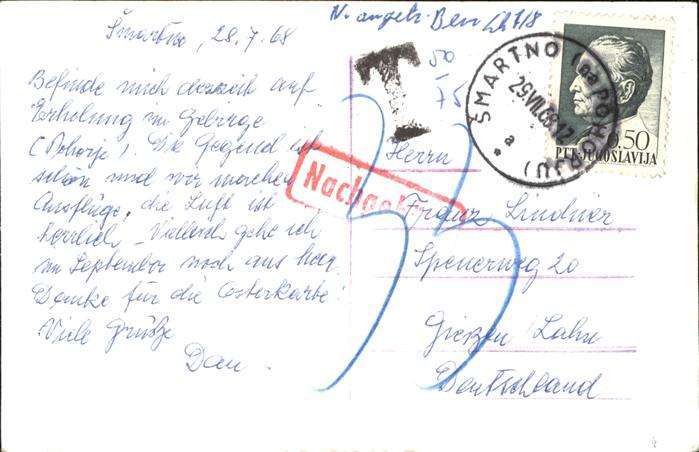 Šmartno, 28.7.68
Befinde mich derzeit auf
Erholung im Gebirge
(Pohorje). Die Gegend ist
schön und wir machen
Ausflüge, die Luft ist
herrlich. Vielleich gehe ich
im September noch ans Meer.
Danke für die Osterkarte!
Viele Grüße
Dan.
T
50
75
ŠMARTNO (na POHORJU)
a
0.50
PTT JUGOSLAVIJA
Nachgebühr
33
Herrn
Franz Lindner
Spenerweg 20
Gießen/Lahn
Deutschland